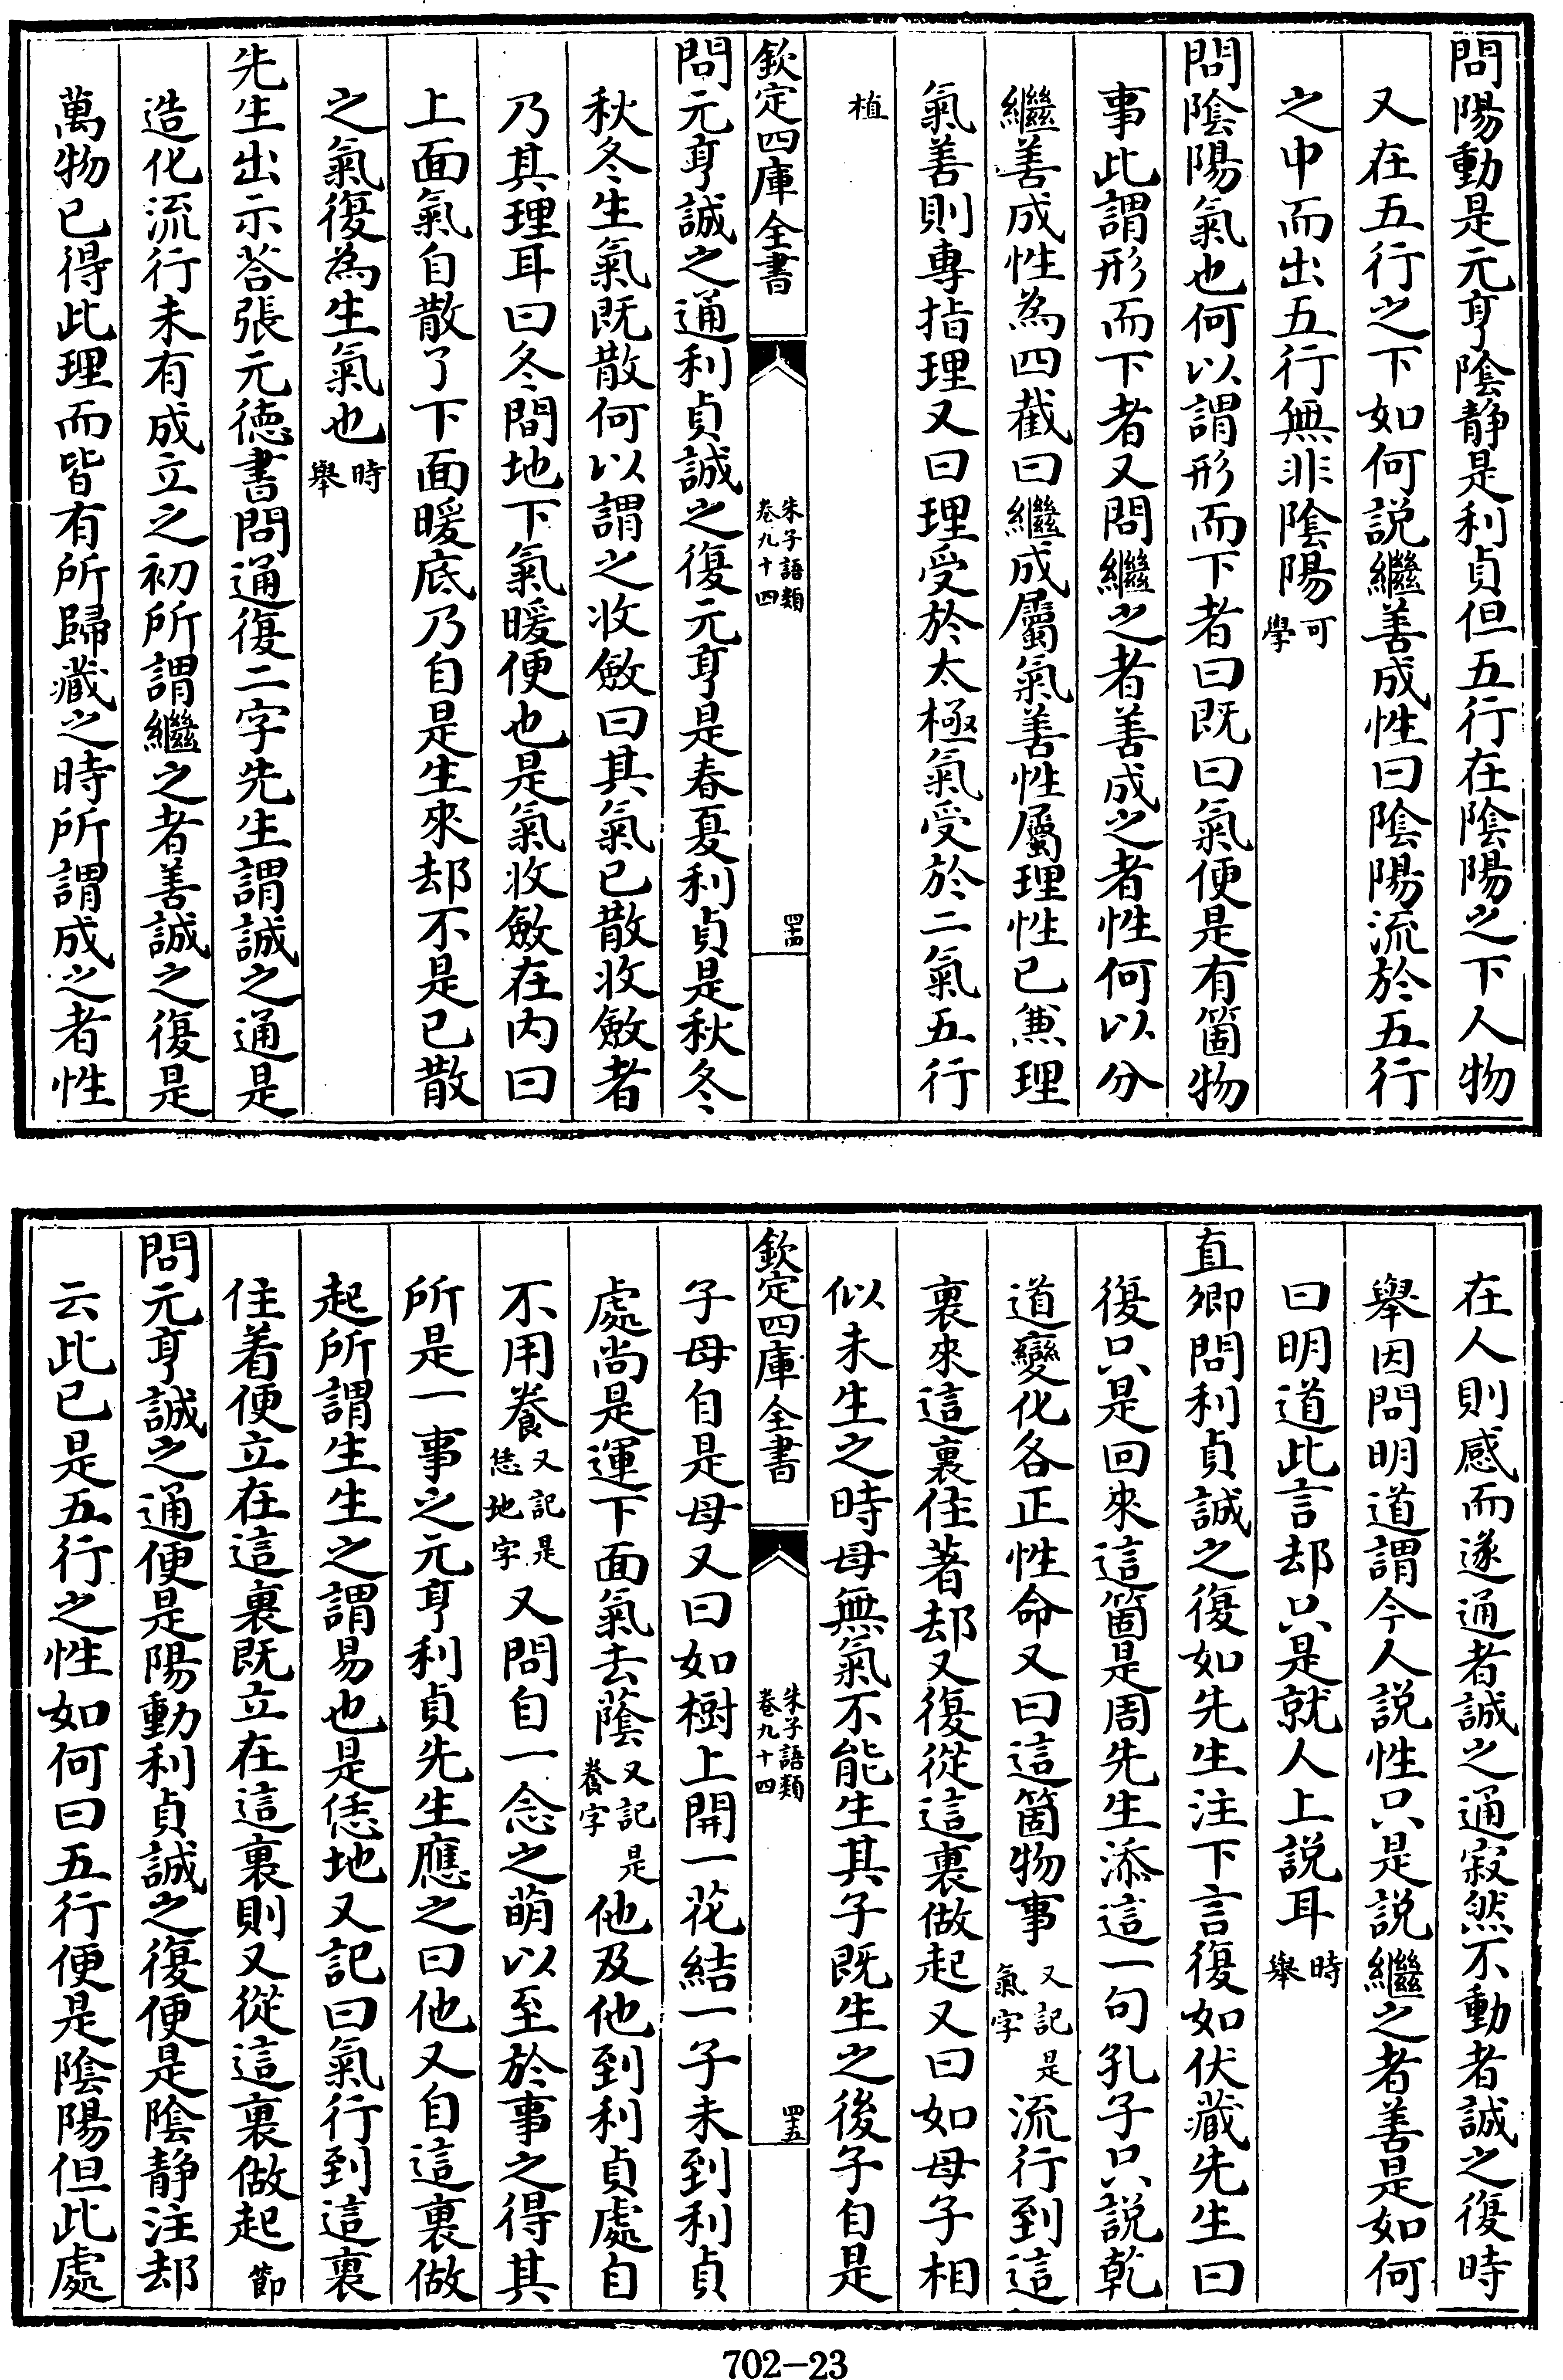 問陽動是元亨陰靜是利貞但五行在陰陽之下人物
又在五行之下如何説繼善成性曰陰陽流於五行
之中而出五行無非陰陽可學
問陰陽氣也何以謂形而下者曰既曰氣便是有箇物
事此謂形而下者又問繼之者善成之者性何以分
繼善成性為四截曰繼成屬氣善性屬理性已兼理
氣善則專指理又曰理受於太極氣受於二氣五行
植
欽定四庫全書
朱子語類
卷九十四
四十四
問元亨誠之通利貞誠之復元亨是春夏利貞是秋冬
秋冬生氣既散何以謂之收斂曰其氣已散收斂者
乃其理耳曰冬間地下氣暖便也是氣收斂在内曰
上面氣自散了下面暖底乃自是生來却不是已散
之氣復為生氣也時舉
先生出示答張元德書問通復二字先生謂誠之通是
造化流行未有成立之初所謂繼之者善誠之復是
萬物已得此理而皆有所歸藏之時所謂成之者性
在人則感而遂通者誠之通寂然不動者誠之復時
舉因問明道謂今人説性只是説繼之者善是如何
曰明道此言却只是就人上説耳時舉
直卿問利貞誠之復如先生注下言復如伏藏先生曰
復只是回來這箇是周先生添這一句孔子只説乾
道變化各正性命又曰這箇物事又記是氣字流行到這
裏來這裏住著却又復從這裏做起又曰如母子相
似未生之時母無氣不能生其子既生之後子自是
欽定四庫全書
朱子語類
卷九十四
四十五
子母自是母又曰如樹上開一花結一子未到利貞
處尚是運下面氣去蔭又記是養字他及他到利貞處自
不用養又記是恁地字又問自一念之萌以至於事之得其
所是一事之元亨利貞先生應之曰他又自這裏做
起所謂生生之謂易也是恁地又記曰氣行到這裏
住着便立在這裏既立在這裏則又從這裏做起節
問元亨誠之通便是陽動利貞誠之復便是陰靜注却
云此已是五行之性如何曰五行便是陰陽但此處
702-23